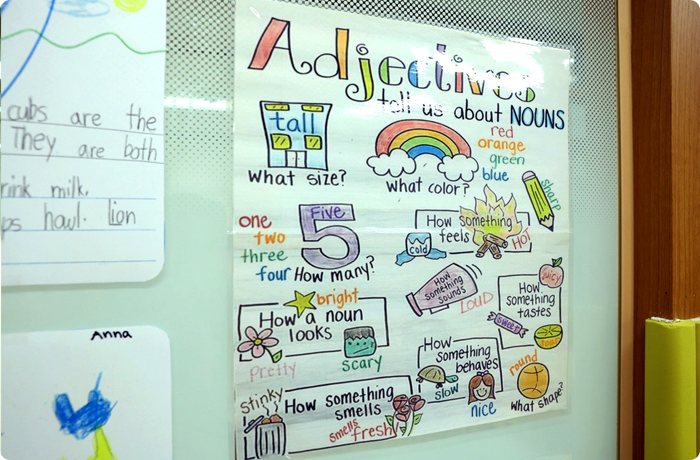 cubs are the
They are both
rink milk.
ps howl. lion
Anna
Adjectives
tell us about NOUNS
tall
What size?
What color?
red
orange
green
blue
sharp
one
two
three
four
Five
How many?
How something
feels
cold
HOT
bright
How a noun
looks
pretty
scary
How
something
sounds
LOUD
juicy
How
something
tastes
sweet
sour
How
something
behaves
slow
nice
round
What shape?
stinky
How something
smells
smells
fresh